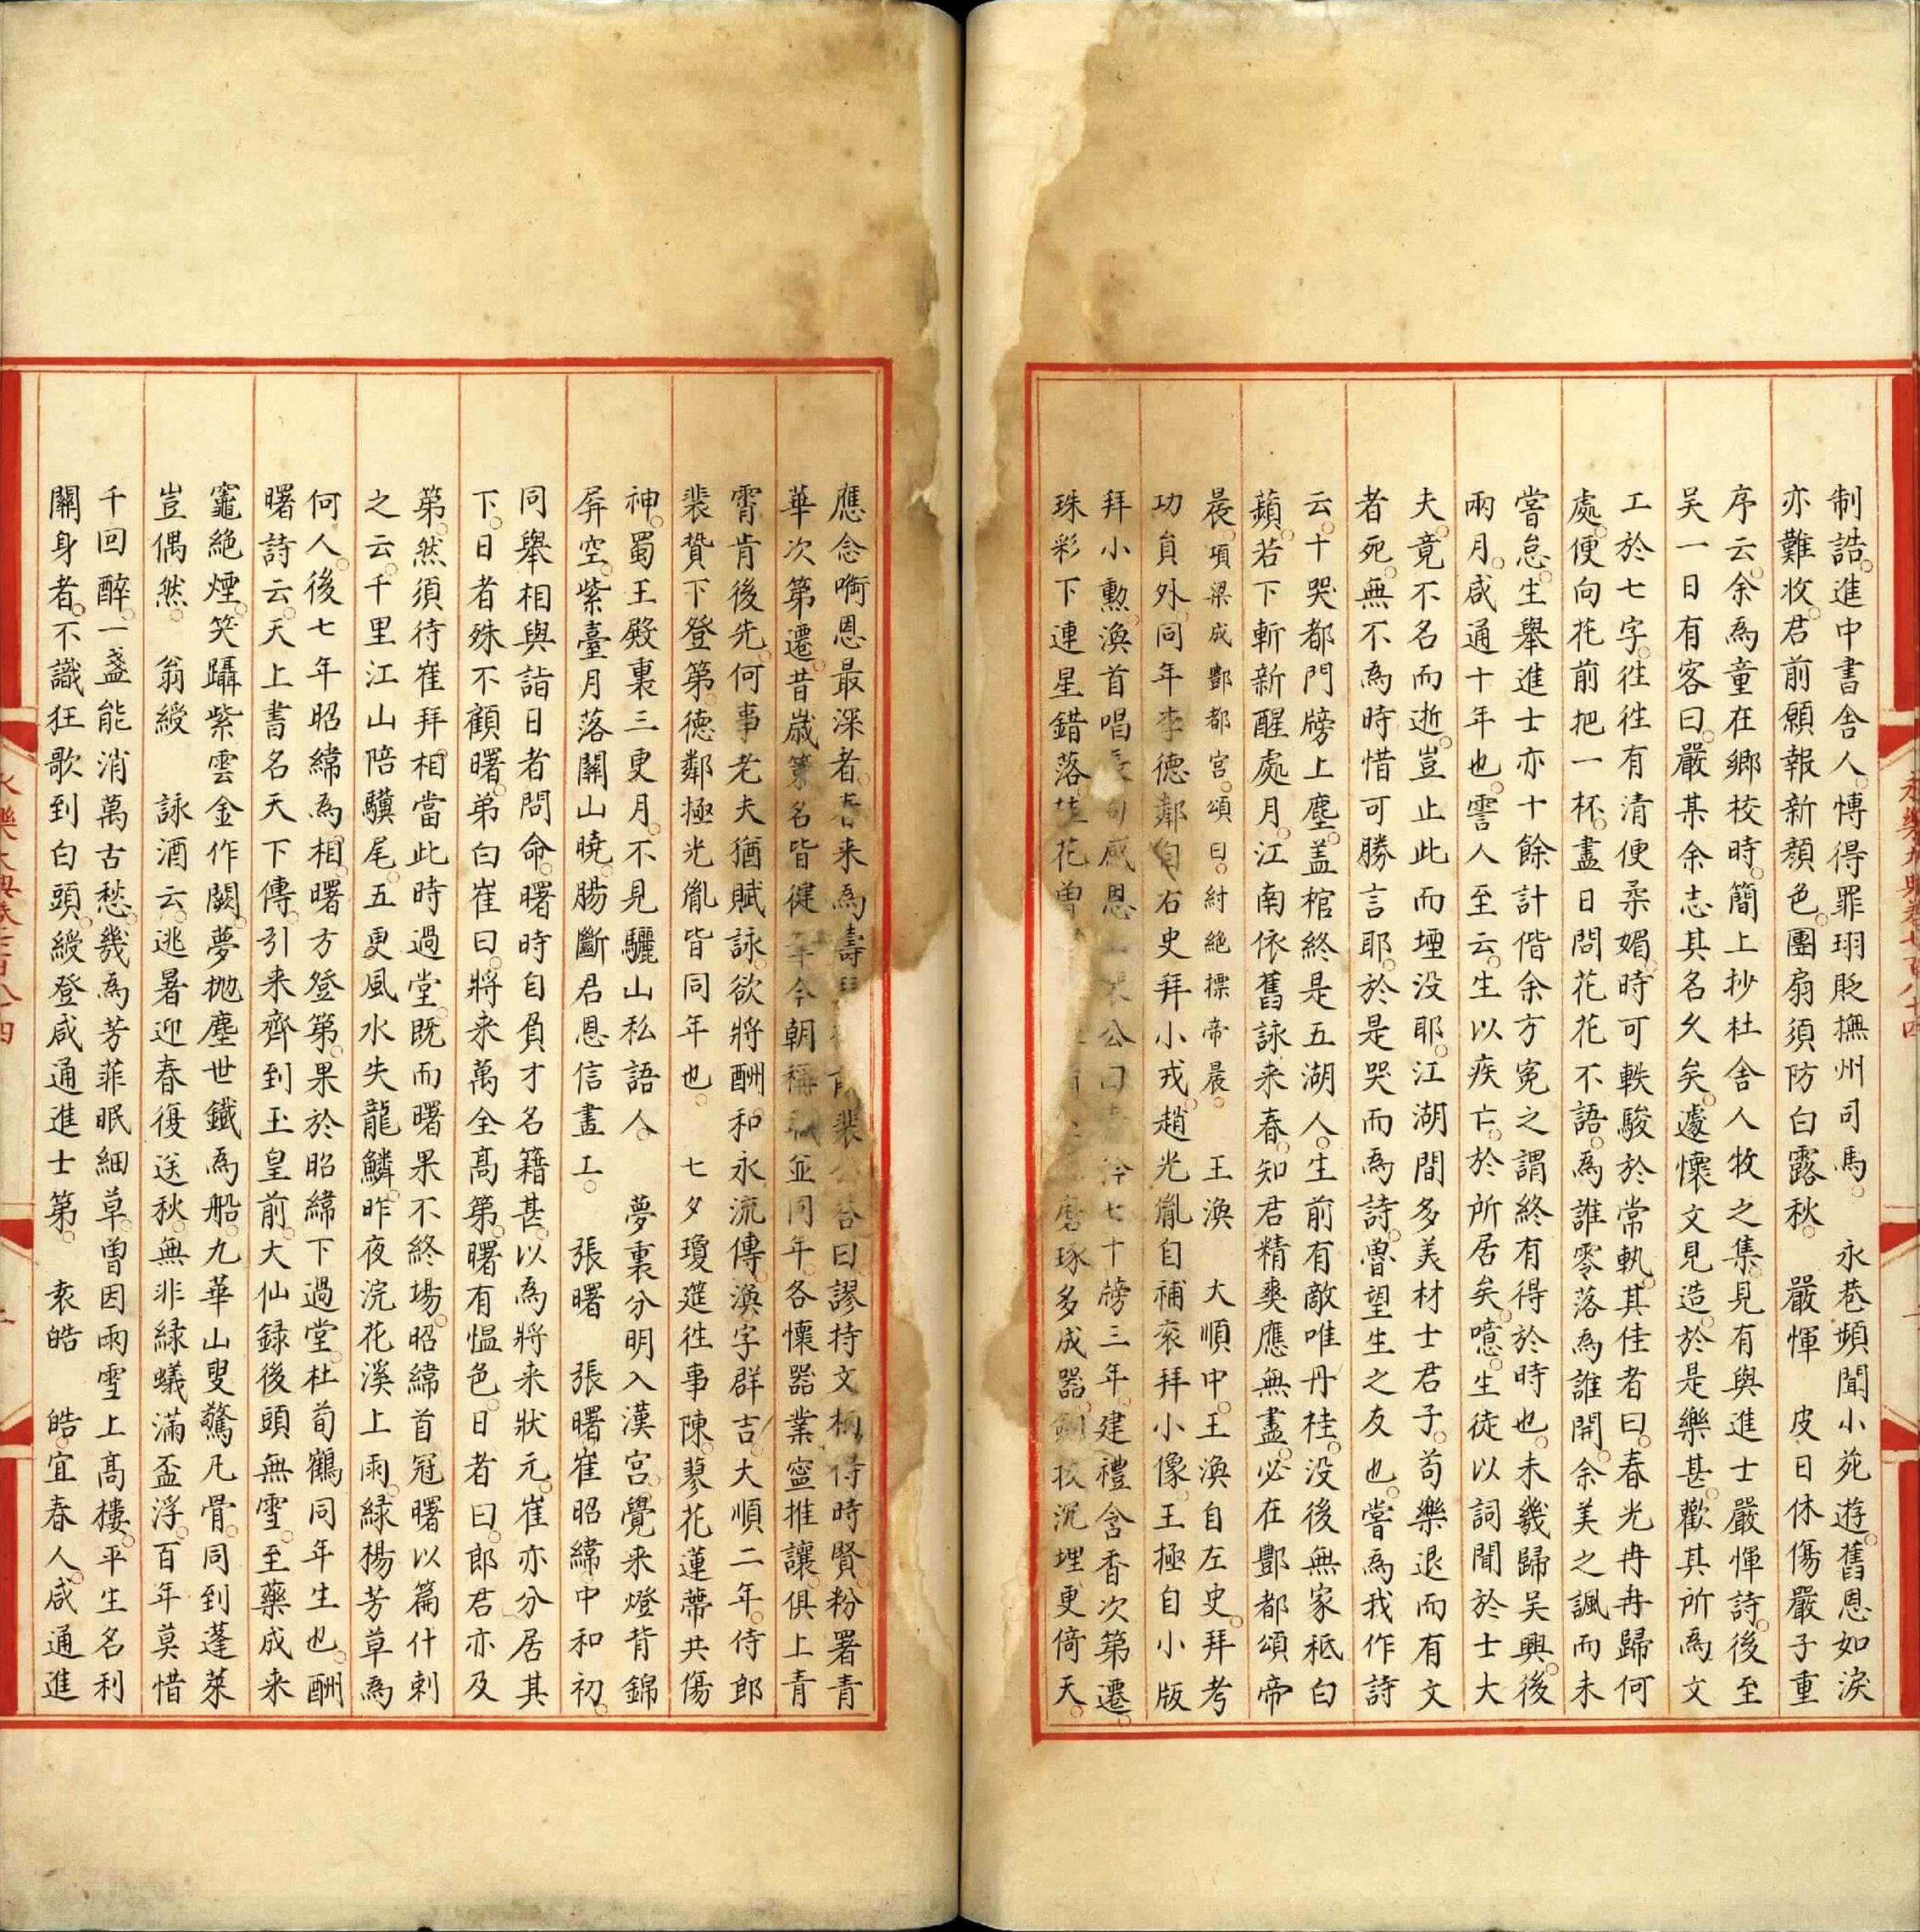 制誥進中書舍人慱得罪珝貶撫州司馬 永巷頻聞小苑遊舊恩如淚
亦難收君前願報新顏色團扇須防白露秋 嚴惲 皮日休傷嚴子重
序云余為童在鄉校時簡上抄杜舍人牧之集見有與進士嚴惲詩後至
吳一日有客曰嚴某余志其名久矣遽懷文見造於是樂甚歡其所為文
工於七字徃徃有清便柔媚時可軼駿於常執其佳者曰春光冉冉歸何
處便向花前把一杯盡日問花花不語為誰零落為誰開余美之諷而未
嘗怠生舉進士亦十餘計偕余方寃之謂終有得於時也未幾歸吳興後
兩月咸通十年也霅人至云生以疾亡於所居矣噫生徒以詞聞於士大
夫竟不名而逝豈止此而堙没耶江湖間多美材士君子苟樂退而有文
者死無不為時惜可勝言耶於是哭而為詩魯望生之友也當為我作詩
云十哭都門牓上塵盖棺終是五湖人生前有敵唯丹桂没後無家秪白
蘋若下斬新醒處月江南依舊詠来春知君精爽應無盡必在酆都頌帝
晨項梁成酆都宮頌曰紂絕標帝晨 王渙 大順中王渙自左史拜考
功貟外同年李德鄰自右史拜小戎趙光胤自補衮拜小像王極自小版
拜小勳渙首唱長句感恩上裴公曰青衿七十牓三年建禮含香次第遷
珠彩下連星錯落桂花曽 磨琢多成器劍拔沉埋更倚天
應念㗸恩最深者春来為壽 裴公荅曰謬持文柄得時賢粉署青
華次第遷昔歲策名皆健筆今朝稱職並同年各懷器業寍推讓俱上青
霄肯後先何事老夫猶賦詠欲將酬和永流傳渙字群吉大順二年侍郎
裴贄下登第德鄰極光胤皆同年也 七夕瓊筵徃事陳蓼花蓮蔕共傷
神蜀王殿裏三更月不見驪山私語人 夢裏分明入漢宮覺来燈背錦
屏空紫臺月落關山曉腸斷君恩信畫工 張曙 張曙崔昭緯中和初
同舉相與詣日者問命曙時自負才名籍甚以為將来狀元崔亦分居其
下日者殊不顧曙弟白崔曰將来萬全高第曙有愠色日者曰郎君亦及
第然須待崔拜相當此時過堂既而曙果不終場昭緯首冠曙以篇什刺
之云千里江山陪驥尾五更風水失龍鱗昨夜浣花溪上雨緑楊芳草為
何人後七年昭緯為相曙方登第果於昭緯下過堂杜荀鶴同年生也酬
曙詩云天上書名天下傳引来齊到玉皇前大仙録後頭無雪至藥成来
竈絶煙笑躡紫雲金作闕夢拋塵世鐵為船九華山叟驚凡骨同到蓬萊
豈偶然 翁綬 詠酒云逃暑迎春復送秋無非緑蟻滿盃浮百年莫惜
千回醉一盞能消萬古愁幾為芳菲眠細草曽因雨雪上高樓平生名利
關身者不識狂歌到白頭綬登咸通進士第 袁皓 皓宜春人咸通進